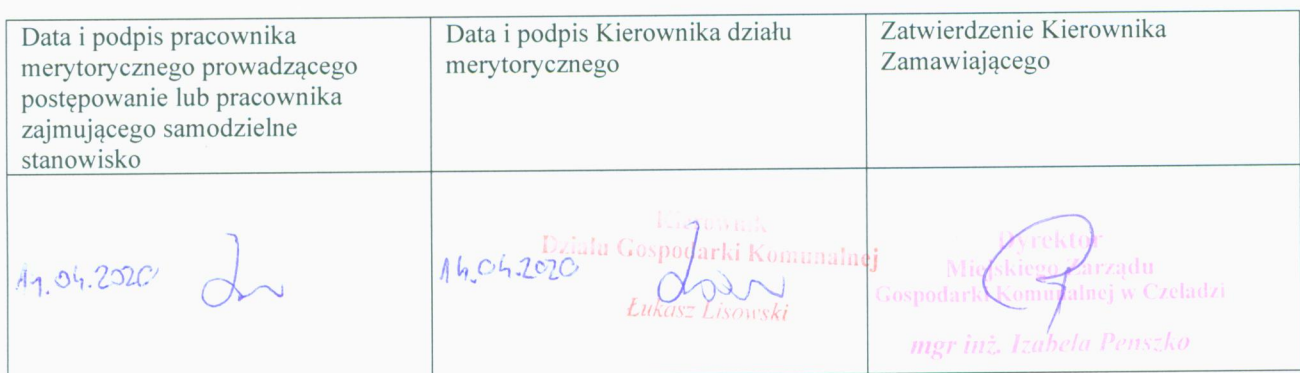 Data i podpis pracownika
merytorycznego prowadzącego
postępowanie lub pracownika
zajmującego samodzielne
stanowisko
Data i podpis Kierownika działu
merytorycznego
Zatwierdzenie Kierownika
Zamawiającego
14.04.2020
Kierownik
Działu Gospodarki Komunalnej
14.04.2020
Łukasz Lisowski
Dyrektor
Miejskiego Zarządu
Gospodarki Komunalnej w Czeladzi
mgr inż. Izabela Penszko